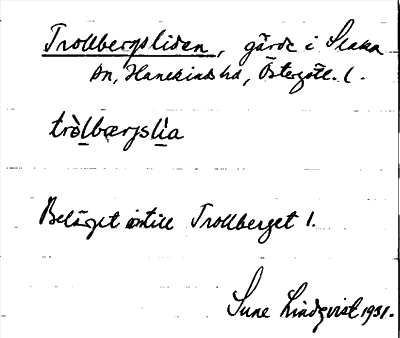 Trollbergsliden, gärde i Slaka
sn, Hanekinds hd, Östergötl. l.
tròlbærjslìa
Beläget intill Trollberget 1.
Sune Lindqvist 1931.